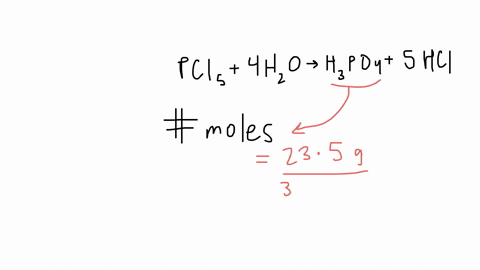 PCl₅ + 4H₂O → H₃PO₄ + 5HCl
# moles
= 23.5 g
3